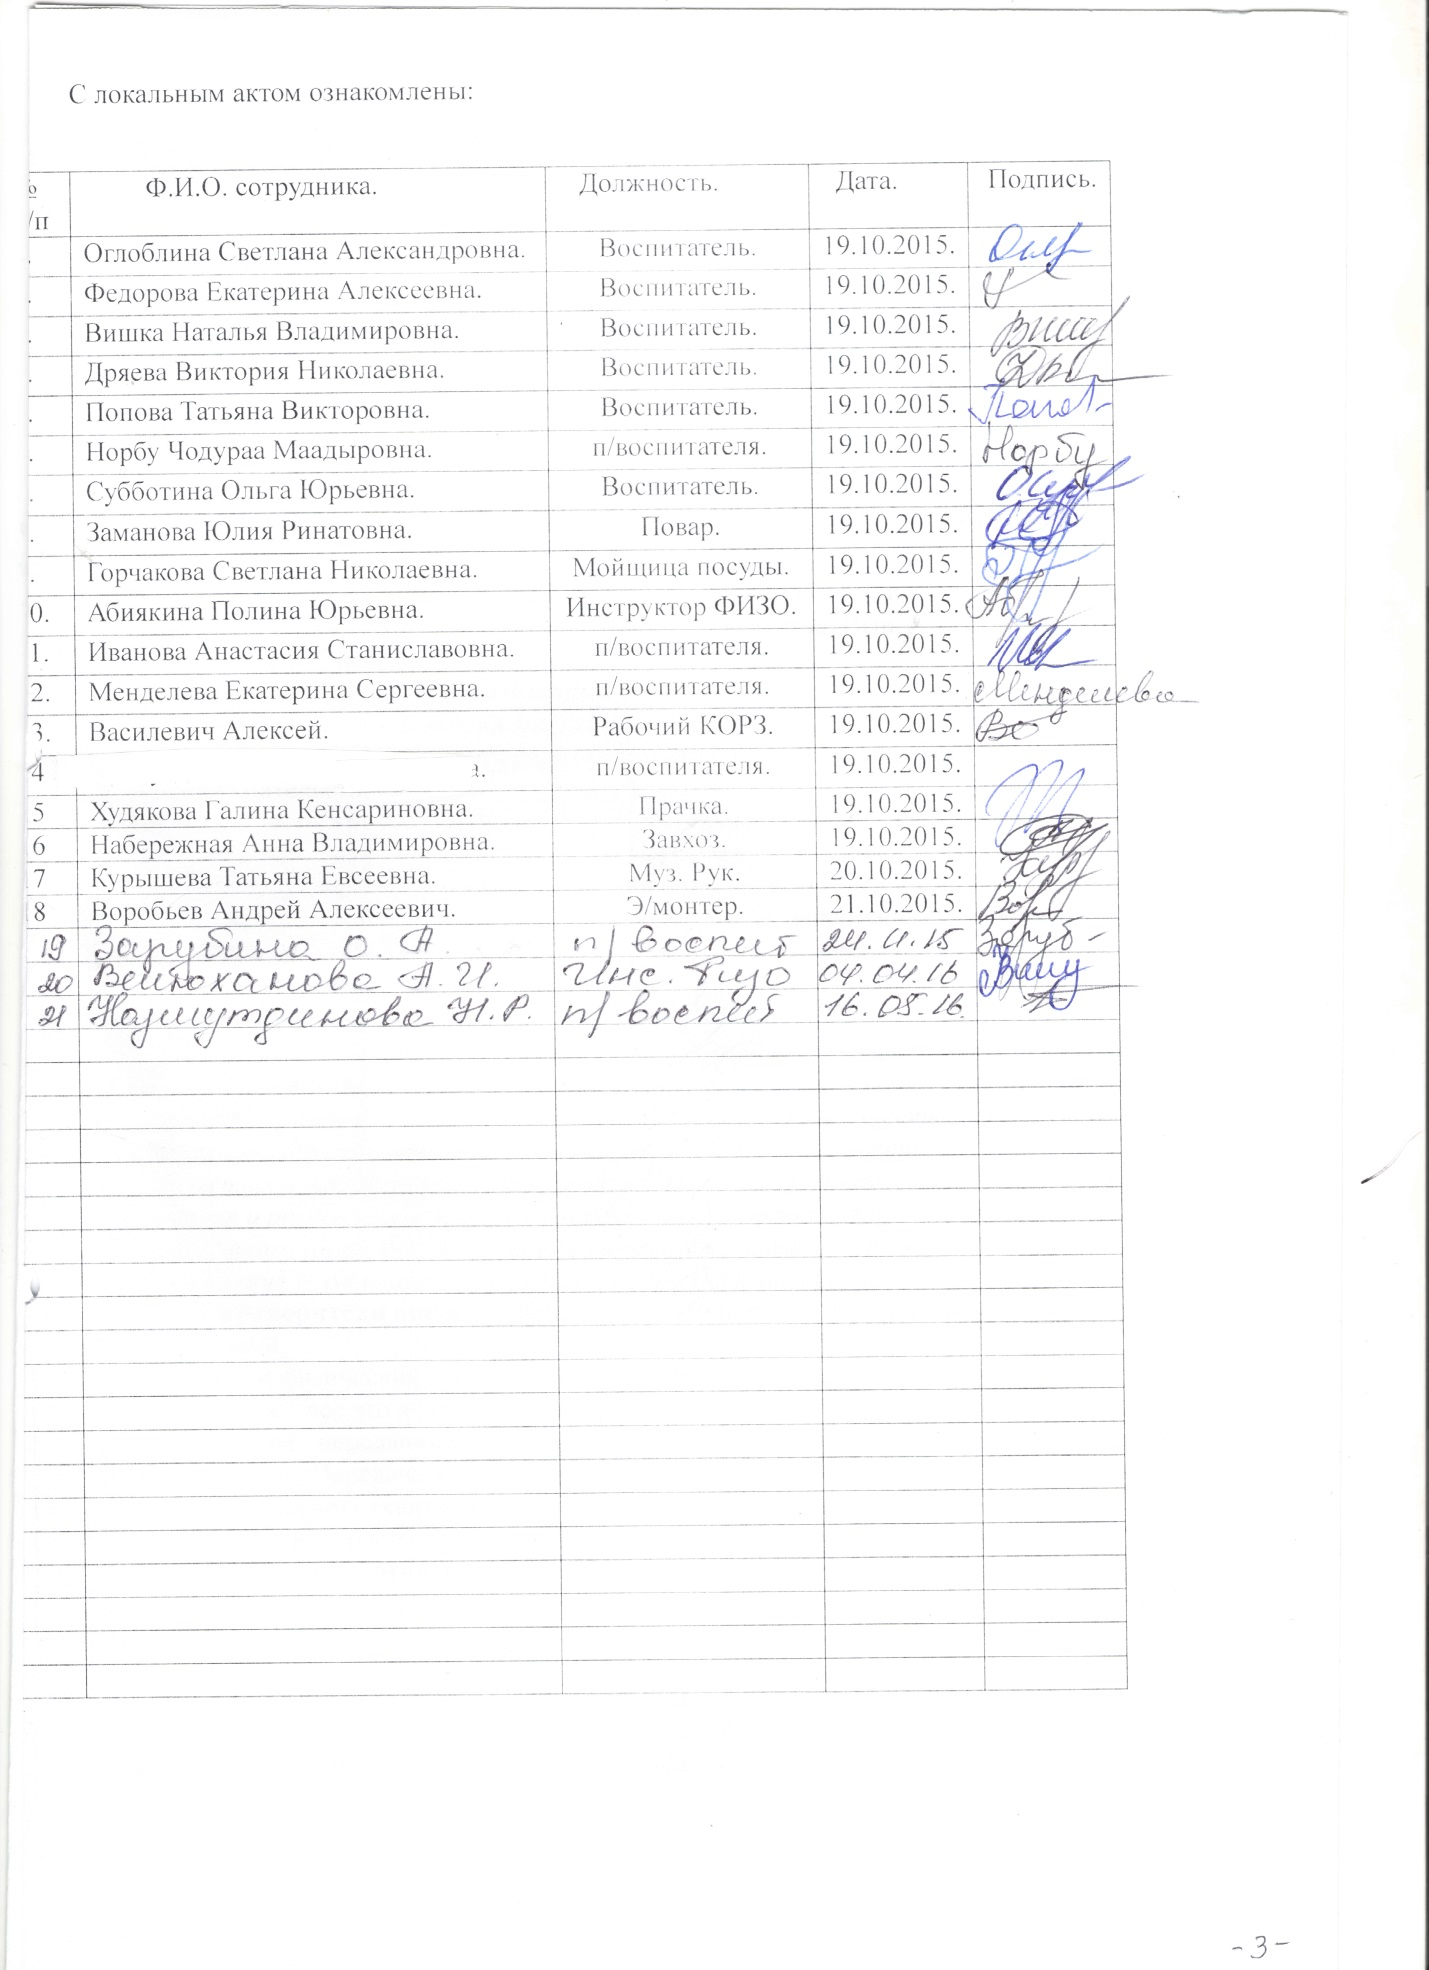 С локальным актом ознакомлены:
№ Ф.И.О. сотрудника. Должность. Дата. Подпись.
/п
. Оглоблина Светлана Александровна. Воспитатель. 19.10.2015.
. Федорова Екатерина Алексеевна. Воспитатель. 19.10.2015.
. Вишка Наталья Владимировна. Воспитатель. 19.10.2015.
. Дряева Виктория Николаевна. Воспитатель. 19.10.2015.
. Попова Татьяна Викторовна. Воспитатель. 19.10.2015.
. Норбу Чодураа Маадыровна. п/воспитателя. 19.10.2015. Норбу
. Субботина Ольга Юрьевна. Воспитатель. 19.10.2015.
. Заманова Юлия Ринатовна. Повар. 19.10.2015.
. Горчакова Светлана Николаевна. Мойщица посуды. 19.10.2015.
0. Абиякина Полина Юрьевна. Инструктор ФИЗО. 19.10.2015.
1. Иванова Анастасия Станиславовна. п/воспитателя. 19.10.2015.
2. Менделева Екатерина Сергеевна. п/воспитателя. 19.10.2015. Менделева
3. Василевич Алексей. Рабочий КОРЗ. 19.10.2015.
4 а. п/воспитателя. 19.10.2015.
5 Худякова Галина Кенсариновна. Прачка. 19.10.2015.
6 Набережная Анна Владимировна. Завхоз. 19.10.2015.
7 Курышева Татьяна Евсеевна. Муз. Рук. 20.10.2015.
8 Воробьев Андрей Алексеевич. Э/монтер. 21.10.2015.
19 Зарубина О. А. п/воспит 24.11.15 Заруб-
20 А.И. Инс. Физо 04.04.16
21 Назмутдинова Н.Р. п/воспит 16.05.16.
-3-